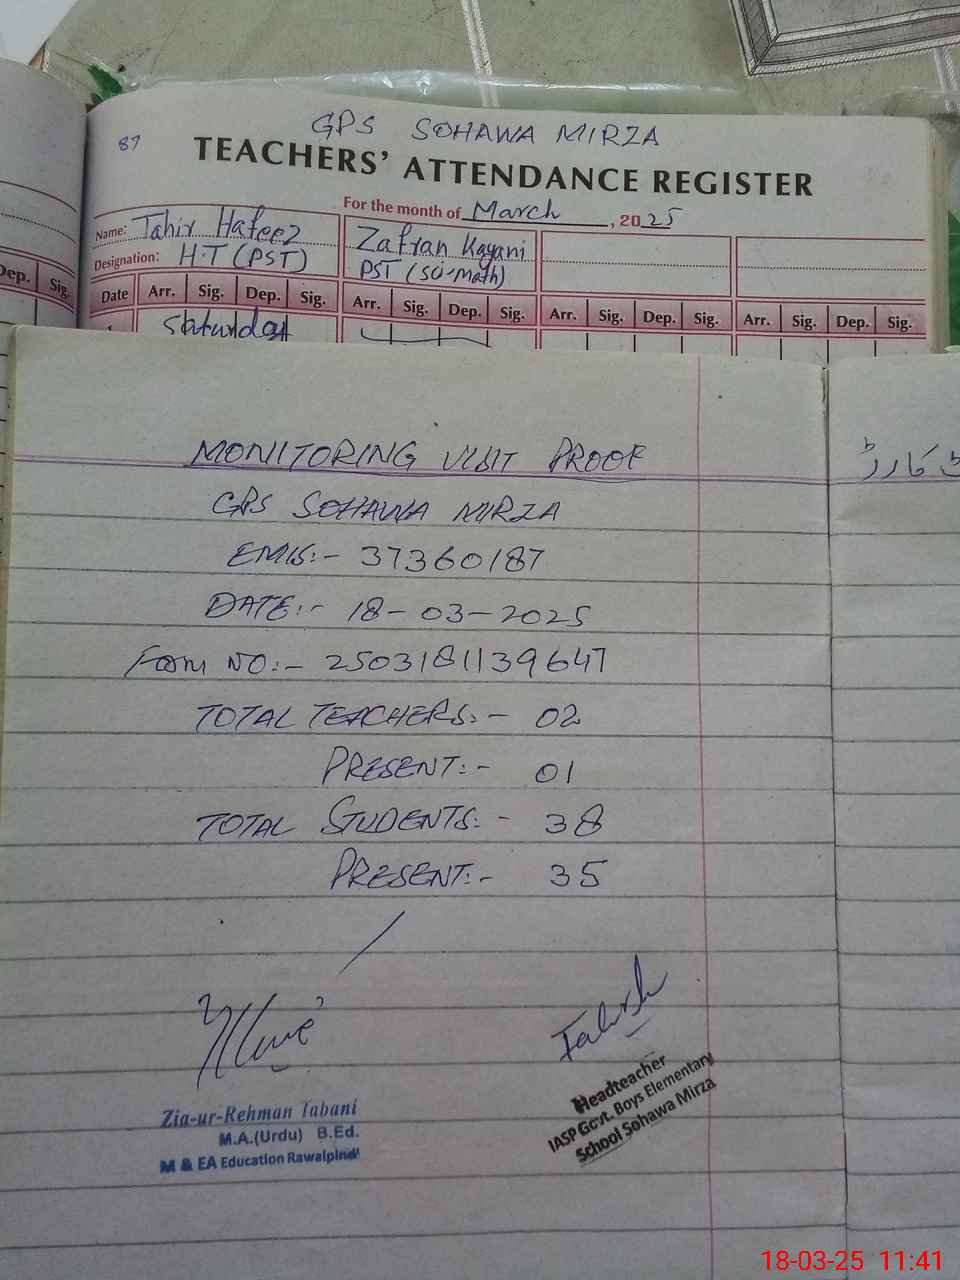 GPS SOHAWA MIRZA
87
TEACHERS' ATTENDANCE REGISTER
For the month of March, 2025
Name: Tahir Hafeez
Zafran Kayani
Designation: H.T (PST)
PST (Sci-Math)
Dep. Sig.
Date Arr. Sig. Dep. Sig. Arr. Sig. Dep. Sig. Arr. Sig. Dep. Sig. Arr. Sig. Dep. Sig.
1 Saturday
MONITORING VISIT PROOF
GPS SOHAWA MIRZA
EMIS:- 37360187
DATE:- 18-03-2025
Form NO:- 2503181139647
TOTAL TEACHERS:- 02
PRESENT:- 01
TOTAL STUDENTS:- 38
PRESENT:- 35
Zia-ur-Rehman Tabani
M.A.(Urdu) B.Ed.
M & EA Education Rawalpindi
Headteacher
IASP Govt. Boys Elementary
School Sohawa Mirza
18-03-25 11:41